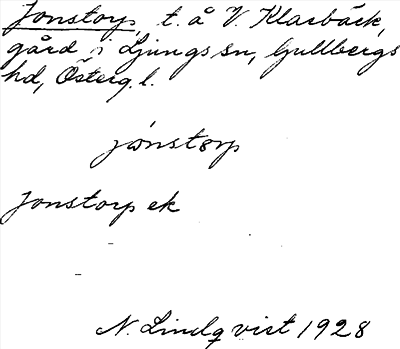 Jonstorp, t. å V. Klarbäck,
gård i Ljungs sn, Gullbergs
hd, Österg. l.
jònstorp
Jonstorp ek
N. Lindqvist 1928